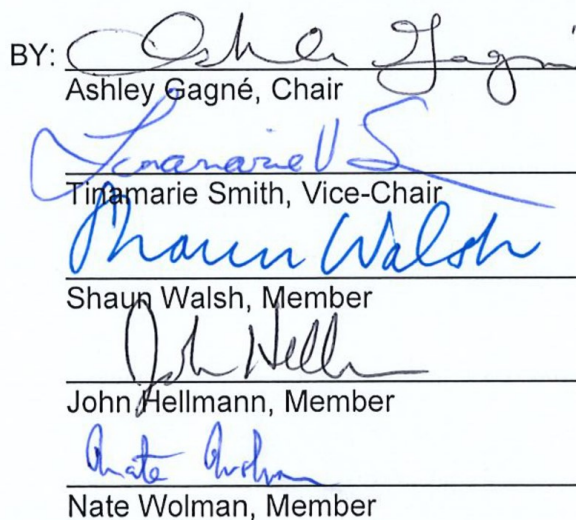 BY: Ashley Gagné
Ashley Gagné, Chair
Tinamarie V S
Tinamarie Smith, Vice-Chair
Shaun Walsh
Shaun Walsh, Member
John Hellm
John Hellmann, Member
Nate
Nate Wolman, Member